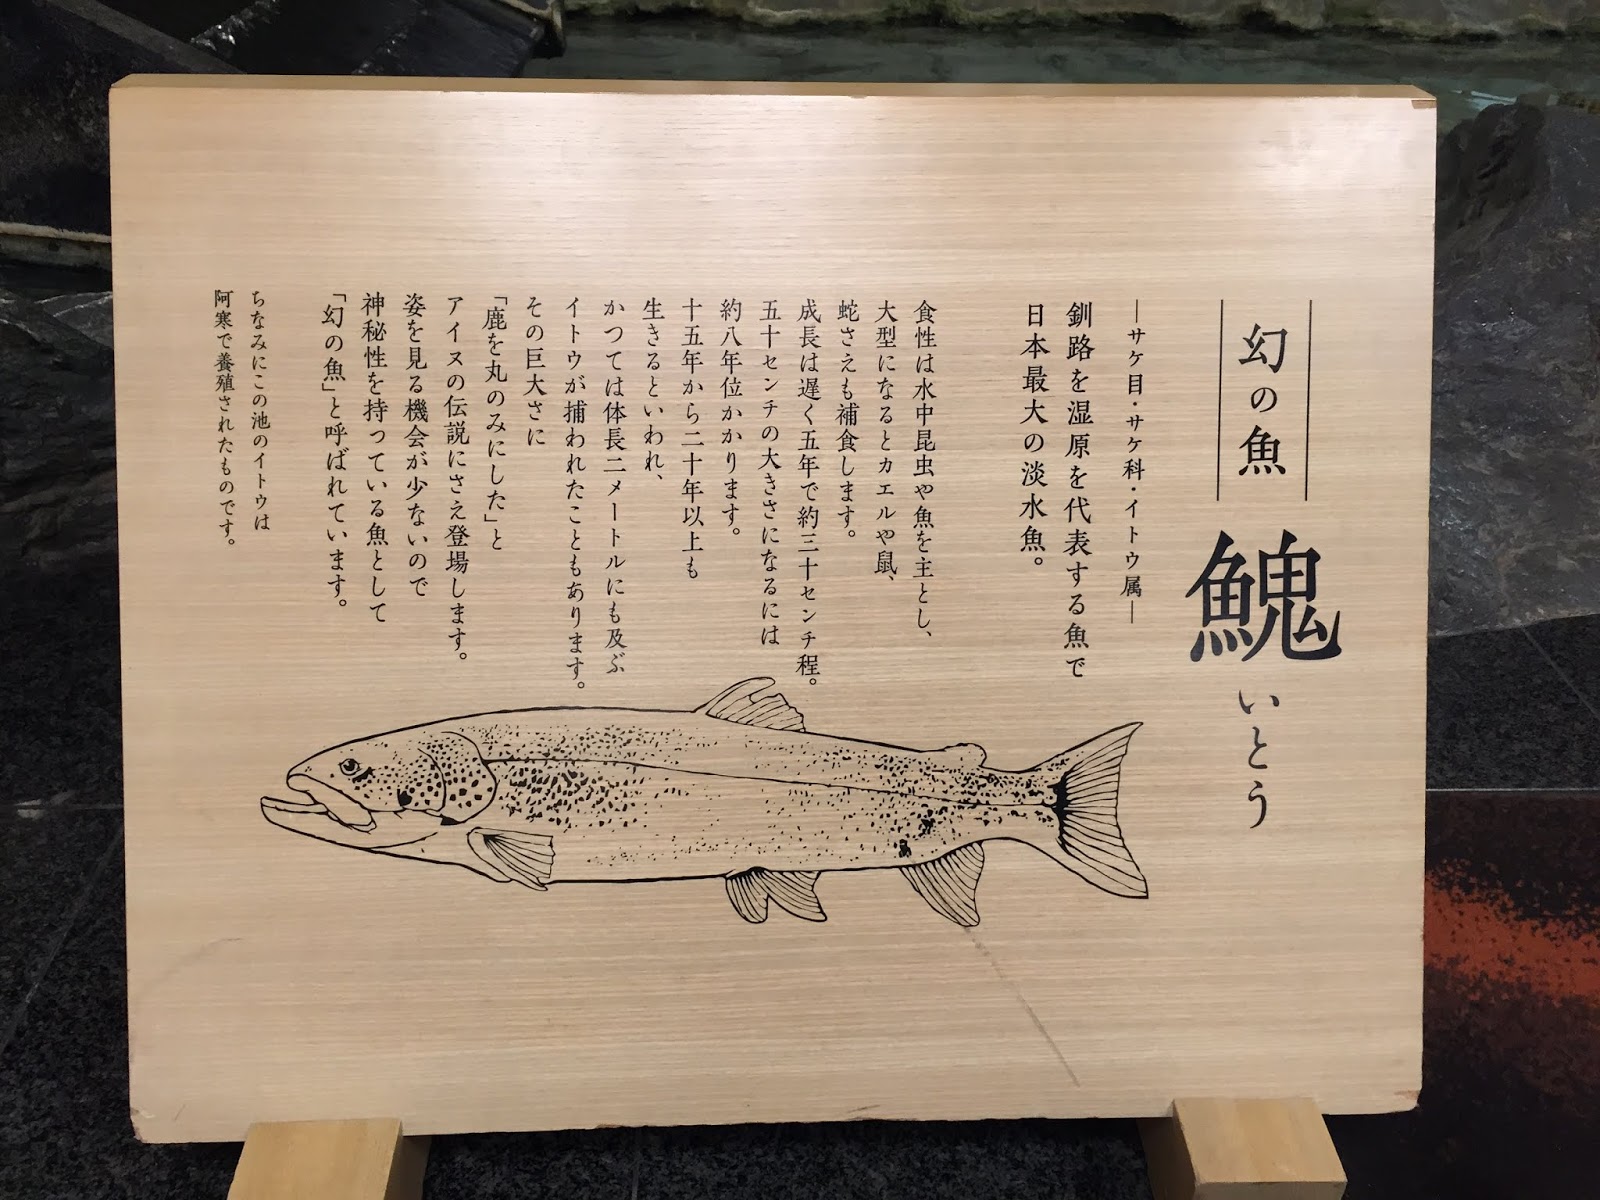 幻の魚
鬼魚 いとう
―サケ目・サケ科・イトウ属―
釧路を湿原を代表する魚で
日本最大の淡水魚。
食性は水中昆虫や魚を主とし、
大型になるとカエルや鼠、
蛇さえも補食します。
成長は遅く五年で約三十センチ程。
五十センチの大きさになるには
約八年位かかります。
十五年から二十年以上も
生きるといわれ、
かつては体長二メートルにも及ぶ
イトウが捕われたこともあります。
その巨大さに
「鹿を丸のみにした」と
アイヌの伝説にさえ登場します。
姿を見る機会が少ないので
神秘性を持っている魚として
「幻の魚」と呼ばれています。
ちなみにこの池のイトウは
阿寒で養殖されたものです。